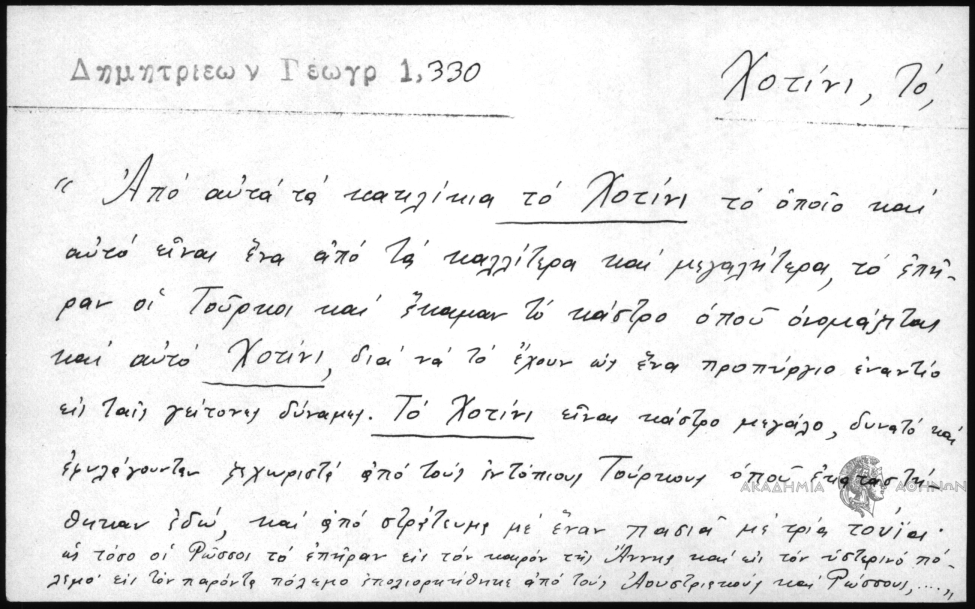 Δημητριεων Γεωγρ 1,330
Χοτίνι, τό,
“ Ἀπό αὐτά τά κατηλίκια τό Χοτίνι τό ὁποῖο καί
αὐτό εἶναι ἕνα ἀπό τά καλλίτερα καί μεγαλήτερα, τό ἐπῆ-
ραν οἱ Τοῦρκοι καί ἔκαμαν τό κάστρο ὁποῦ ὀνομάζεται
καί αὐτό Χοτίνι, διά νά τό ἔχουν ὡς ἕνα προπύργιο ἐναντίο
εἰς ταῖς γείτονες δύναμες. Τό Χοτίνι εἶναι κάστρο μεγάλο, δυνατό καί
ἐφυλάγουνταν ξεχωριστά ἀπό τούς ἐντόπιους Τούρκους ὁποῦ ἐκαταστή-
θηκαν ἐδώ, καί ἀπό στράτευμα μέ ἕναν πασιᾶ μέ τρία τούϊα·
ὡς τόσο οἱ Ρῶσσοι τό ἐπῆραν εἰς τόν καιρόν τῆς Ἄννης καί εἰς τόν ὑστερινό πό-
λεμο· εἰς τόν παρόντα πόλεμο ἐπολιορκήθηκε ἀπό τούς Ἀουστριακούς καί Ρώσσους, ....„
ΑΚΑΔΗΜΙΑ ΑΘΗΝΩΝ